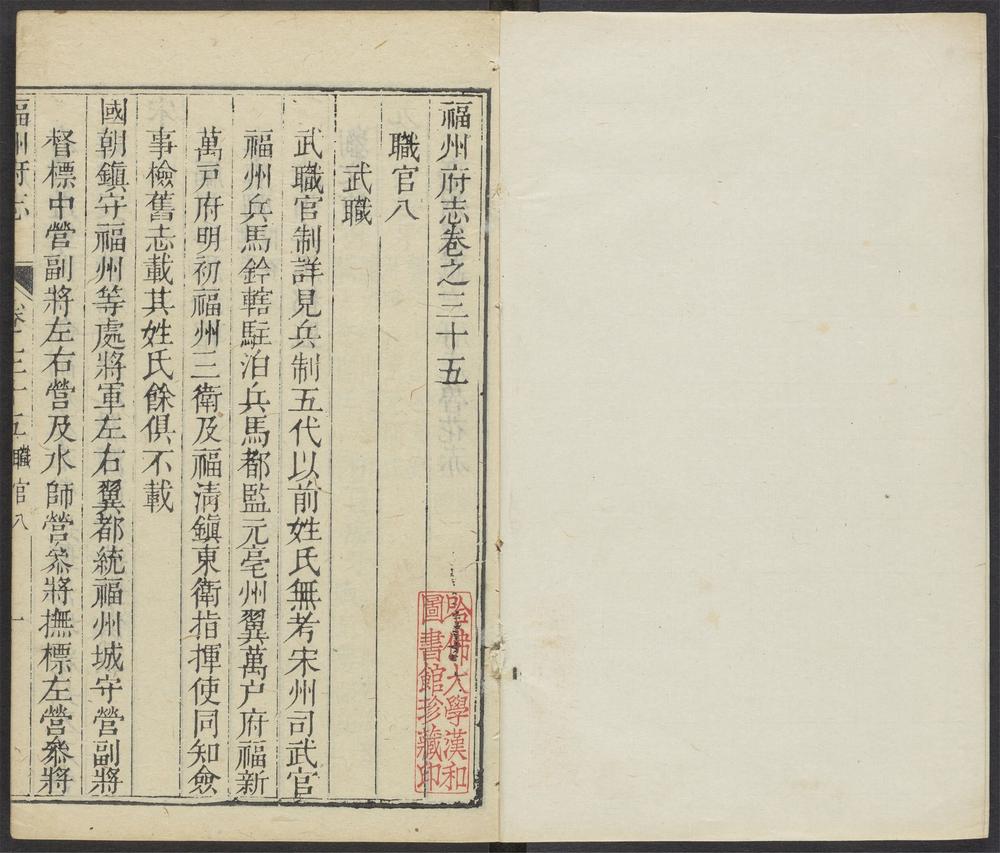 福州府志卷之三十五
職官八
武職
武職官制詳見兵制五代以前姓氏無考宋州司武官
福州兵馬鈐轄駐泊兵馬都監元亳州翼萬户府福新
萬戸府明初福州三衛及福清鎭東衛指揮使同知僉
事檢舊志載其姓氏餘俱不載
國朝鎭守福州等處將軍左右翼都統福州城守營副將
督標中營副將左右營及水師營叅將撫標左營叅將
福州府志
卷之三十五職官八
一
哈佛大學漢和
圖書館珍藏印